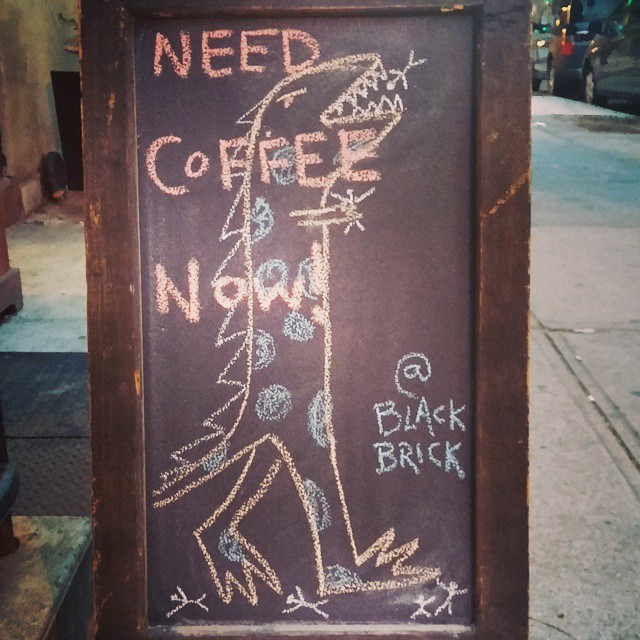 NEED
COFFEE
NOW!
@
BLACK
BRICK